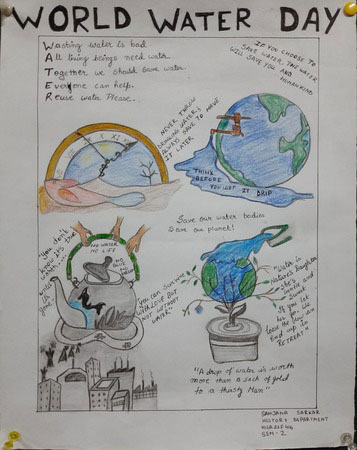 WORLD WATER DAY
Washing water is bad
All living beings need water.
Together we should save water.
Everyone can help.
Reuse water Please.
IF YOU CHOOSE TO
SAVE WATER, THE WATER
WILL SAVE YOU AND
HUMANKIND
NEVER THROW
DRINKING WATER
ALWAYS SAVE TO HAVE
IT LATER
XII
THINK
BEFORE
YOU LET IT DRIP
Save our water bodies
Save our planet!
You don't
know
it's true
until
NO WATER
NO LIFE
NO BLUE
NO GREEN
"You can survive
WITH LOVE BUT
NOT WITHOUT
WATER"
"Water is
Nature's Daughter
she's
inside and
If you let
her go, we
lose the war
End up in
RETREAT
"A drop of water is worth
more than a sack of gold
to a thirsty Man"
SANJANA SARKAR
HISTORY DEPARTMENT
SEM-2